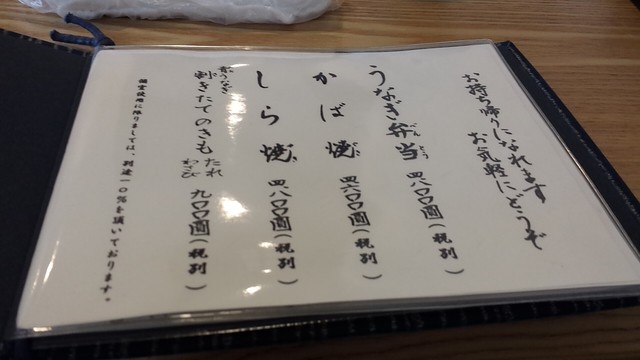 お持ち帰りになれます
お気軽にどうぞ
うなぎ弁当 四八〇〇圓(税別)
かば焼 四六〇〇圓(税別)
しら焼 四八〇〇圓(税別)
割きたてのきも たれ わさび 九〇〇圓(税別)
個室使用に限りましては、別途一〇%を頂いております。